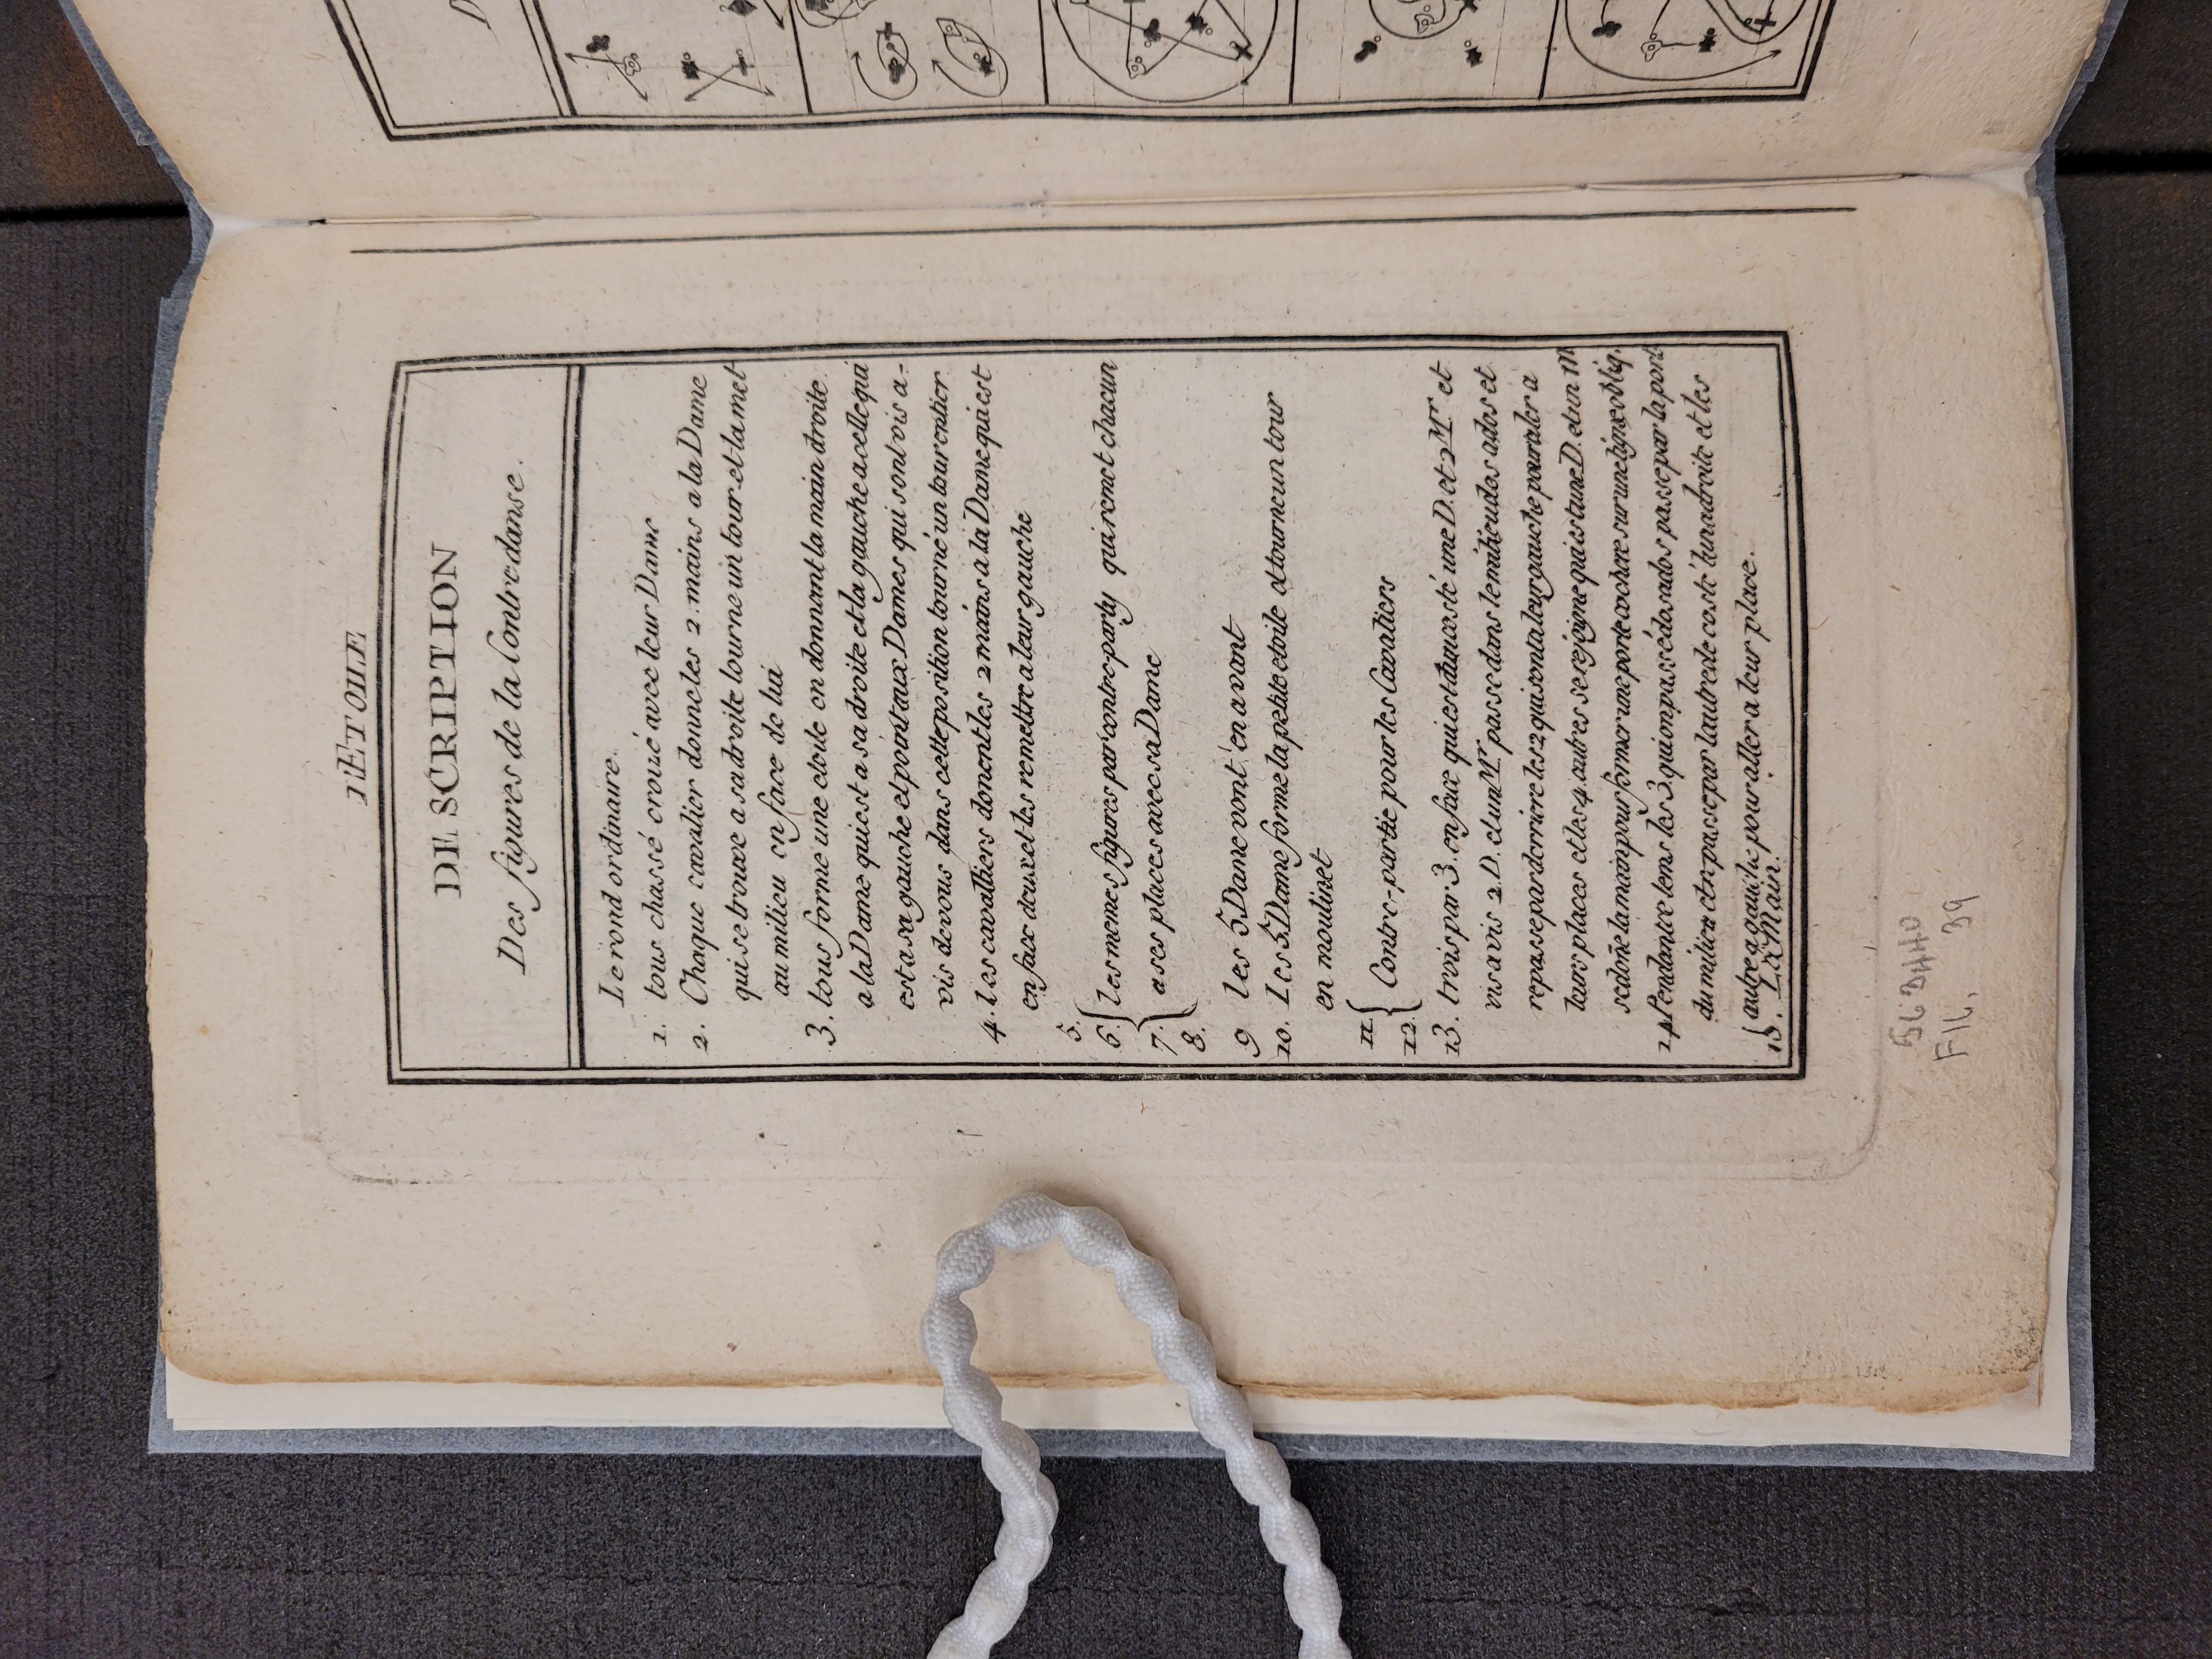 l'ETOILE
DESCRIPTION
Des figures de la Contredanse.
Le rond ordinaire.
1. tous chassé croisé avec leur Dame
2. Chaque cavalier donne les 2. mains a la Dame
qui se trouve a sa droite tourne un tour et la met
au milieu en face de lui
3. tous forme une etoile en donnant la main droite
a la Dame qui est a sa droite et la gauche a celle qui
est a sa gauche et point aux Dames qui sont vis a-
vis de vous dans cette position tourné un tour entier
4. Les cavalliers donent les 2 mains a la Dame qui est
en face deux et les remettre a leur gauche
5.
6. { les memes figures par contre-party qui remet chacun
7. } a ses places avec sa Dame
8.
9 les 5 Dame vont en avant
10. Les 5 Dame forme la petite etoile et tourne un tour
en moulinet
11. { Contre-partie pour les Cavaliers
12.
13. trois par 3. en face qui est d'un costé une D. et 2 Mr. et
vis a vis 2 D. et un Mr. passe dans le milieu dos a dos et
repasse par derriere les 2 qui sont a leur gauche pour aler a
leurs places et les 4. autres se rejoigne qui est une D. et un M
se done la main pour former une porte cochere sur une ligne obliq.
14 Pendant ce tems les 3. qui ont passé dos a dos passe par la porte
du milieu et en passe par l'autre de costé l'un a droite et les
autre a gauche pour aller a leur place.
15. La Main.
56 - DHHO
F16, 39